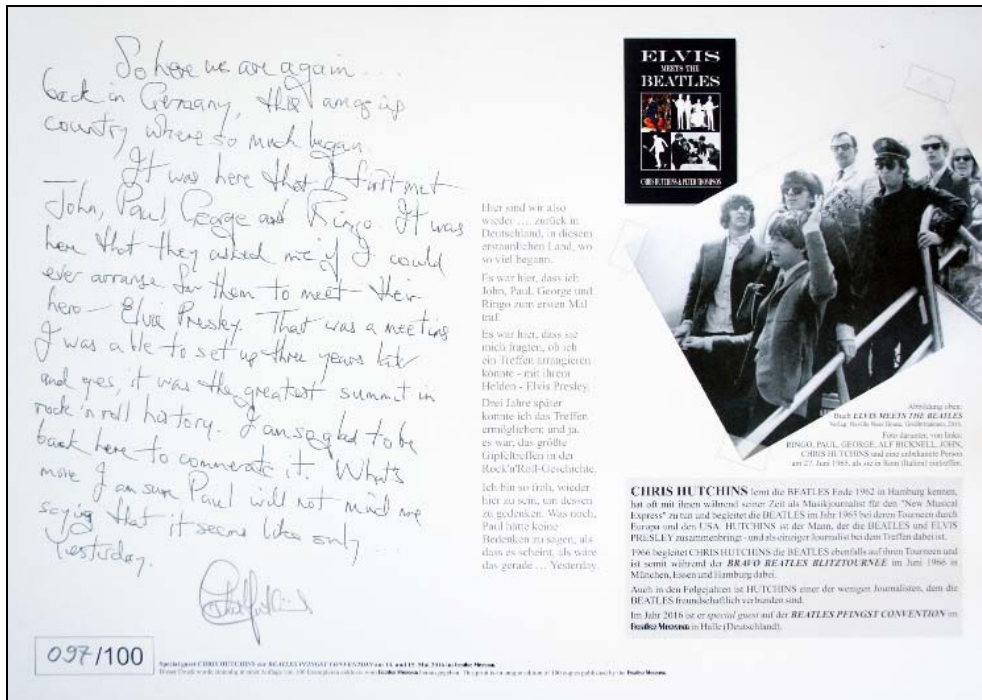 So here we are again ...
back in Germany, this amazing
country where so much began.
It was here that I first met
John, Paul, George and Ringo. It was
here that they asked me if I could
ever arrange for them to meet their
hero - Elvis Presley. That was a meeting
I was able to set up three years late
and yes, it was the greatest summit in
rock 'n roll history. I am so glad to be
back here to commerate it. What's
more I am sure Paul will not mind me
saying that it seems like only ...
Yesterday.
097/100
Hier sind wir also
wieder .... zurück in
Deutschland, in diesem
erstaunlichen Land, wo
so viel begann.
Es war hier, dass ich
John, Paul, George und
Ringo zum ersten Mal
traf.
Es war hier, dass sie
mich fragten, ob ich
ein Treffen arrangieren
könnte - mit ihrem
Helden - Elvis Presley.
Drei Jahre später
konnte ich das Treffen
ermöglichen; und ja,
es war, das größte
Gipfeltreffen in der
Rock'n'Roll-Geschichte.
Ich bin so froh, wieder
hier zu sein, um dessen
zu gedenken. Was noch,
Paul hätte keine
Bedenken zu sagen, als
dass es scheint, als wäre
das gerade ... Yesterday.
ELVIS
MEETS THE
BEATLES
CHRIS HUTCHINS & PETER THOMPSON
Abbildung oben:
Buch ELVIS MEETS THE BEATLES
Foto darunter, von links:
RINGO, PAUL, GEORGE, ALF BICKNELL, JOHN,
CHRIS HUTCHINS und eine unbekannte Person
am 27. Juni 1965, als sie in Rom (Italien) eintreffen.
CHRIS HUTCHINS lernt die BEATLES Ende 1962 in Hamburg kennen,
hat oft mit ihnen während seiner Zeit als Musikjournalist für den "New Musical
Express" zu tun und begleitet die BEATLES im Jahr 1965 bei deren Tourneen durch
Europa und den USA. HUTCHINS ist der Mann, der die BEATLES und ELVIS
PRESLEY zusammenbringt - und als einziger Journalist bei dem Treffen dabei ist.
1966 begleitet CHRIS HUTCHINS die BEATLES ebenfalls auf ihren Tourneen und
ist somit während der BRAVO BEATLES BLITZTOURNEE im Juni 1966 in
München, Essen und Hamburg dabei.
Auch in den Folgejahren ist HUTCHINS einer der wenigen Journalisten, dem die
BEATLES freundschaftlich verbunden sind.
Im Jahr 2016 ist er special guest auf der BEATLES PFINGST CONVENTION im
Beatles Museum in Halle (Deutschland).
Special guest CHRIS HUTCHINS zur BEATLES PFINGST CONVENTION am 14. und 15. Mai 2016 im Beatles Museum.
Dieser Druck wurde einmalig in einer Auflage von 100 Exemplaren exklusiv vom Beatles Museum herausgegeben. This print is an unique edition of 100 copies published by the Beatles Museum.